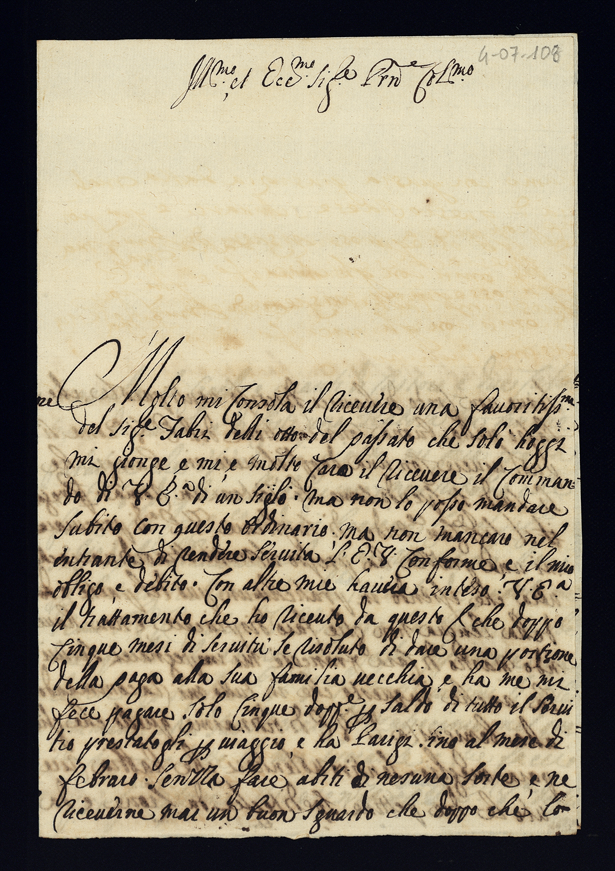 4-07-108
Ill.mo et Ecc.mo Sig.e Prn.e Col.mo
Molto mi consola il riceuere una fauoritiss.ma
del sig.e Fabri delli otto del passato che solo hoggi
mi gionge e mi e molto cara il riceuere il comman
do di V. E.a di un siglo. ma non lo posso mandare
subito con questo ordinario. ma non mancaro nel
entrante di rendere seruita l'E. V. conforme e il mio
obligo e debito. Con altre mie hauera inteso V. E.a
il trattamento che ho riceuto da questo che doppo
cinque mesi di seruitu se risoluto di dare una portione
della paga alla sua familia uecchia, e ha me mi
fece pagare solo cinque doppe p saldo di tutto il serui
tio prestatogli p uiaggio, e ha Parigi sino al mese di
febraro senzza fare abiti di nesuna sorte e ne
riceuerne mai un buon sguardo che doppo che lo